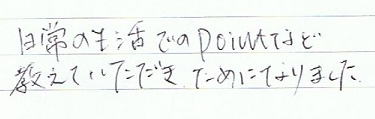 日常の生活でのpointなど
教えていただき ためになりました